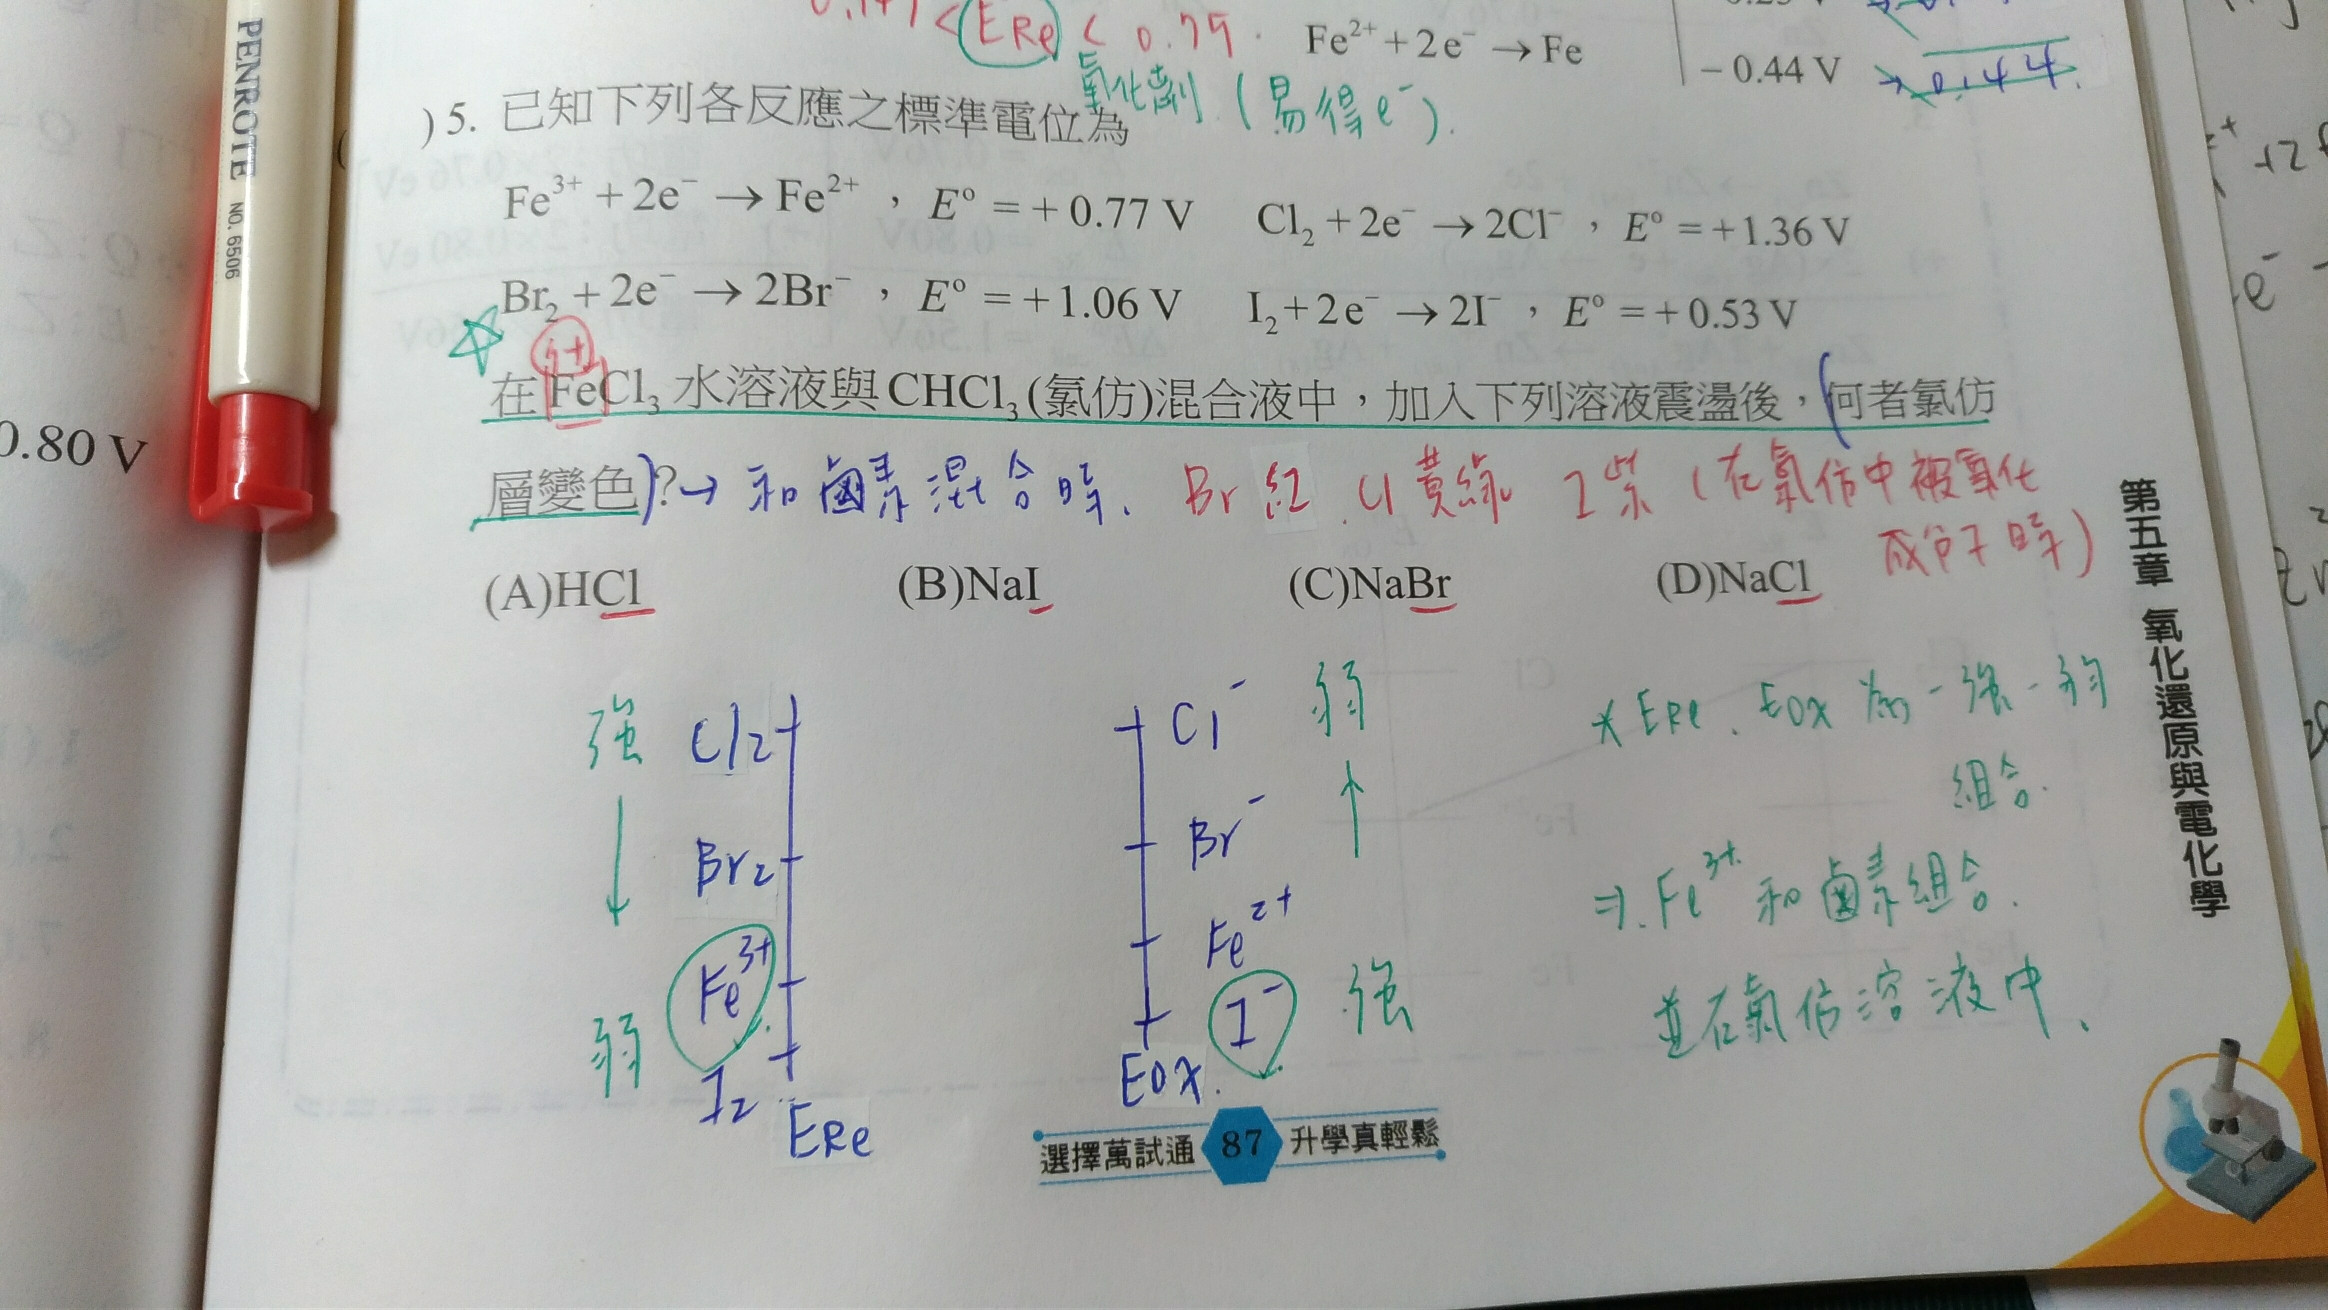 PENROTE NO. 6506
0.80 V
< ERe < 0.79.
Fe²⁺ + 2e⁻ → Fe
-0.44 V
氧化劑 (易得e⁻).
) 5. 已知下列各反應之標準電位為
Fe³⁺ + 2e⁻ → Fe²⁺ , E° = + 0.77 V Cl₂ + 2e⁻ → 2Cl⁻ , E° = +1.36 V
Br₂ + 2e⁻ → 2Br⁻ , E° = +1.06 V I₂ + 2e⁻ → 2I⁻ , E° = + 0.53 V
3+
在FeCl₃ 水溶液與CHCl₃ (氯仿)混合液中,加入下列溶液震盪後,何者氯仿
層變色?→ 和鹵素混合時、 Br 紅、Cl 黃綠 I 紫 (在氯仿中被氧化
成分子時)
(A)HCl (B)NaI (C)NaBr (D)NaCl
強 Cl₂
Br₂
Fe³⁺
弱 I₂
ERe
Cl⁻ 弱
Br⁻
Fe²⁺
I⁻ 強
EOX.
* ERe、EOX 為一強一弱
組合.
⇒. Fe³⁺ 和鹵素組合.
並在氯仿溶液中、
第五章 氧化還原與電化學
選擇萬試通 87 升學真輕鬆